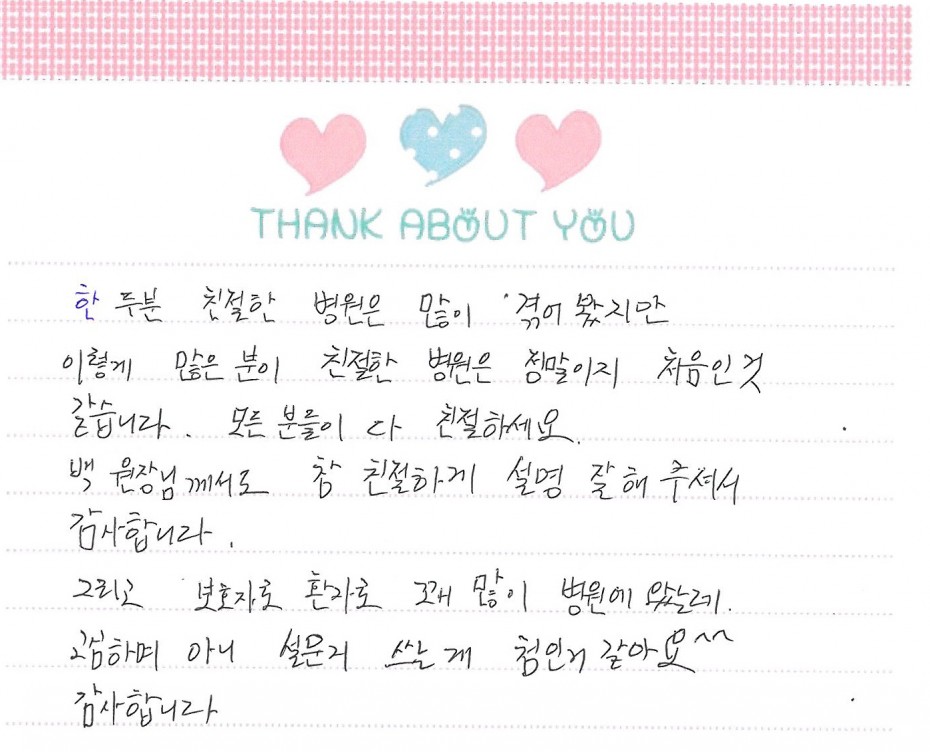 THANK ABOUT YOU
한 두분 친절한 병원은 많이 겪어 봤지만
이렇게 많은 분이 친절한 병원은 정말이지 처음인것
같습니다. 모든 분들이 다 친절하세요.
백 원장님께서도 참 친절하게 설명 잘해 주셔서
감사합니다.
그리고 보호자로 환자로 꽤 많이 병원에 왔는데.
아니 설문지 쓰는게 첨인거 같아요^^
감사합니다